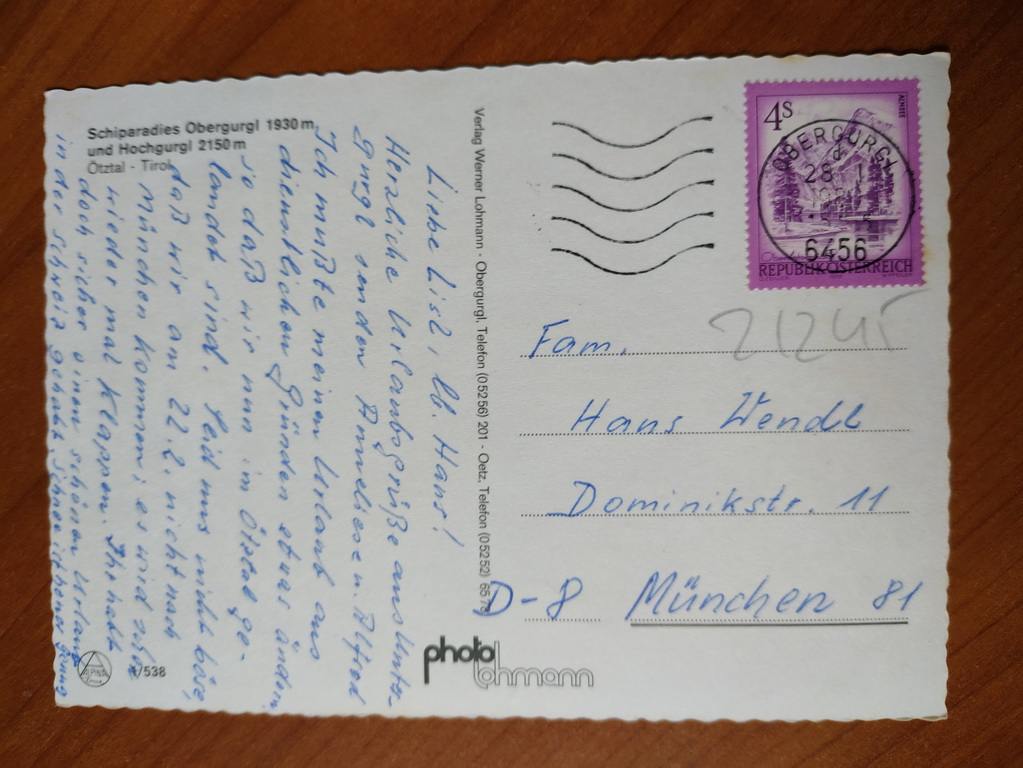 Schiparadies Obergurgl 1930 m
und Hochgurgl 2150 m
Ötztal - Tirol
Liebe Lisl, lb. Hans!
Herzliche Urlaubsgrüße aus Unter-
gurgl senden Anneliese u. Alfred
Ich mußte meinen Urlaub aus
dienstlichen Gründen etwas ändern
so daß wir nun im Ötztal ge-
landet sind. Seid uns nicht böse,
daß wir am 22.2. nicht nach
München kommen; es wird schon
wieder mal klappen. Ihr habt
doch sicher einen schönen Urlaub
in der Schweiz gehabt. Schnee ist hier genug
ALPINA
1/538
Verlag Werner Lohmann - Obergurgl, Telefon (05256) 201 - Oetz, Telefon (05252) 65 78
photo
lohmann
4S
ALMSEE
REPUBLIK ÖSTERREICH
OBERGURGL
28. 1.
6456
21245
Fam.
Hans Wendl
Dominikstr. 11
D-8 München 81